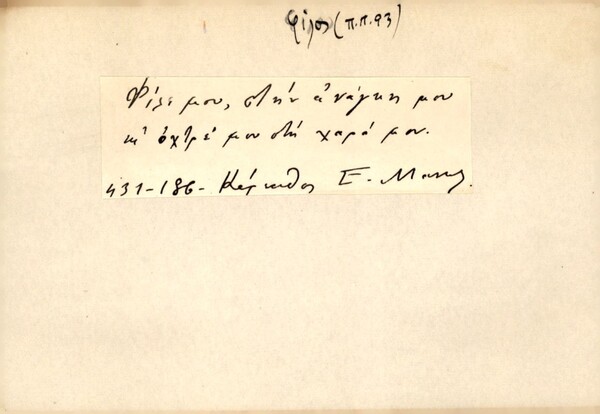 φίλος (π.π.93)
Φίλε μου, στήν ἀνάγκη μου
κι' ὀχτρέ μου στή χαρά μου.
431-186- Κάρπαθος Ε. Μανωλ.